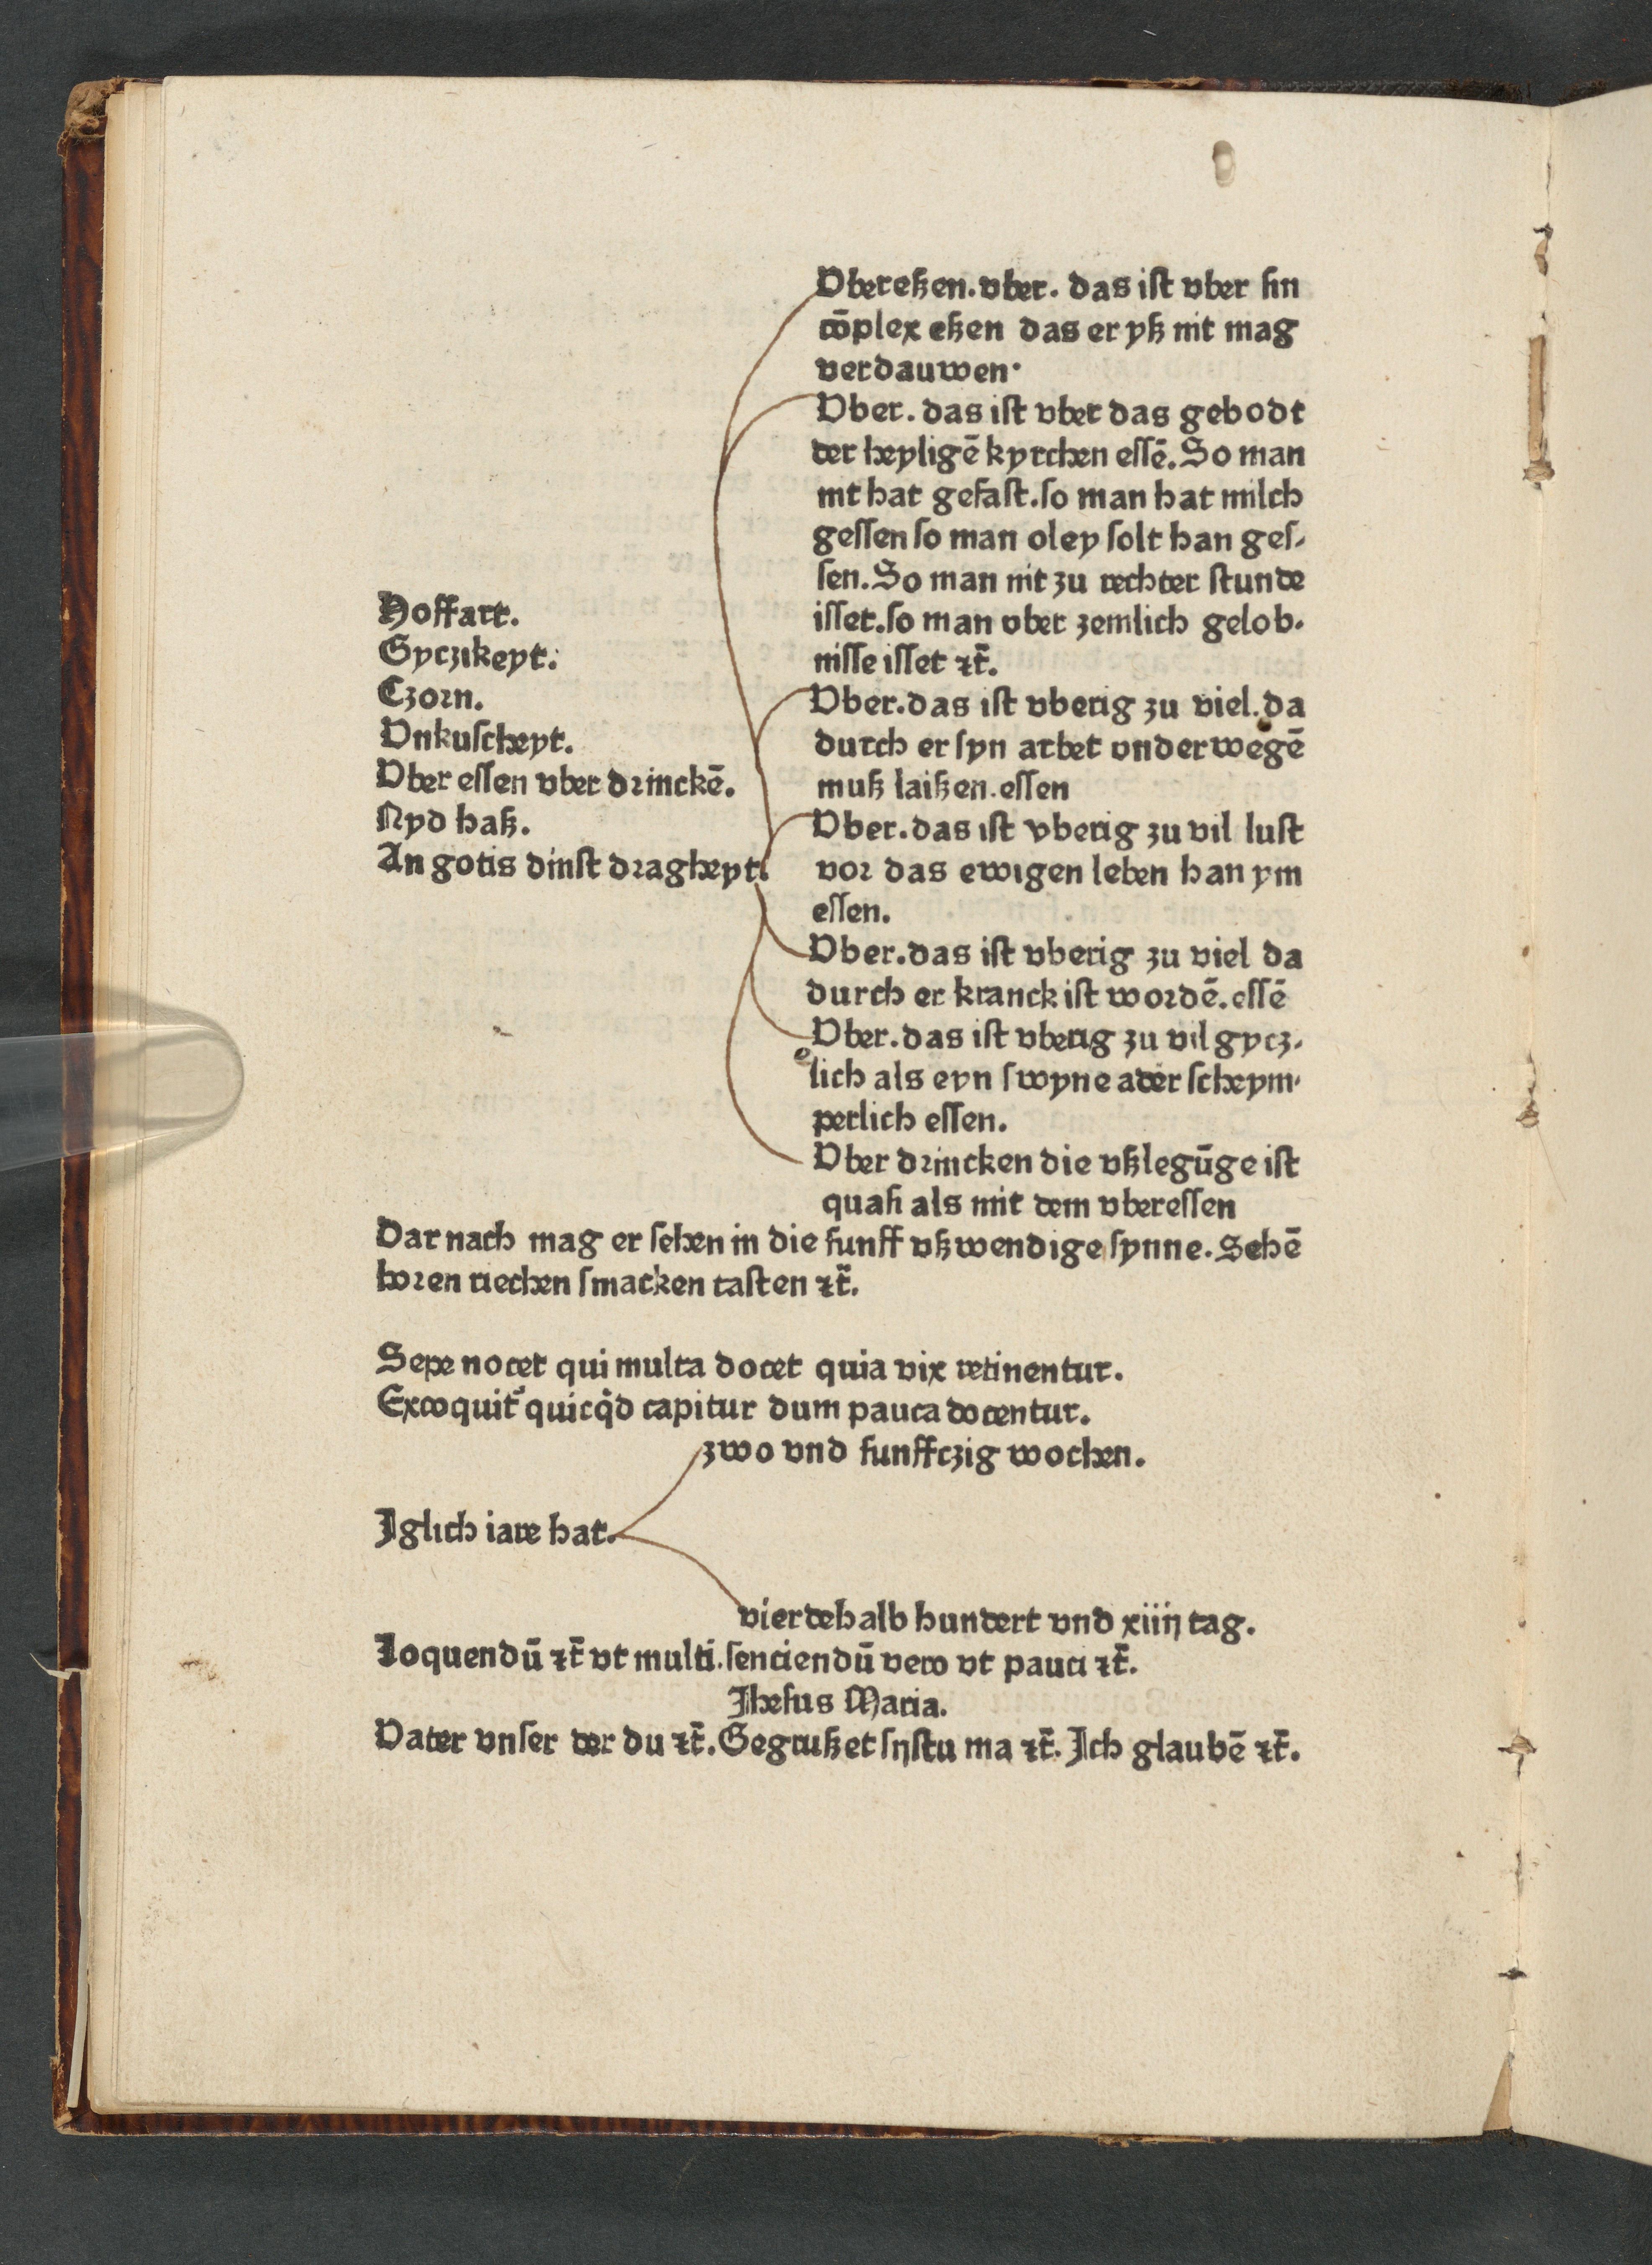 Hoffart.
Gyczikeyt.
Czorn.
Vnkuscheyt.
Vber essen vber drinckē.
Nyd haß.
An gotis dinst dragheyt.
Vbereßen. vber. das ist vber sin
cōplex eßen das er yß nit mag
verdauwen.
Vber. das ist vber das gebodt
der heyligē kyrchen essē. So man
nit hat gefast. so man hat milch
gessen so man oley solt han ges-
sen. So man nit zu rechter stunde
isset. so man vber zemlich gelob-
nisse isset ⁊c̄.
Vber. das ist vberig zu viel. da
durch er syn arbet vnderwegē
muß laißen. essen
Vber. das ist vberig zu vil lust
vor das ewigen leben han ym
essen.
Vber. das ist vberig zu viel da
durch er kranck ist wordē. essē
Vber. das ist vberig zu vil gycz-
lich als eyn swyne ader scheym-
perlich essen.
Vber drincken die vßlegūge ist
quasi als mit dem vberessen
Dar nach mag er sehen in die funff vßwendige synne. Sehē
horen riechen smacken tasten ⁊c̄.
Sepe nocet qui multa docet quia vix retinentur.
Excoquit᷑ quicq̇d capitur dum pauca docentur.
zwo vnd funffczig wochen.
Iglich iare hat.
vierdehalb hundert vnd xiiij tag.
Loquendū ⁊c̄ vt multi. senciendū vero vt pauci ⁊c̄.
Jhesus Maria.
Vater vnser der du ⁊c̄. Gegrußet sijstu ma ⁊c̄. Ich glaubē ⁊c̄.